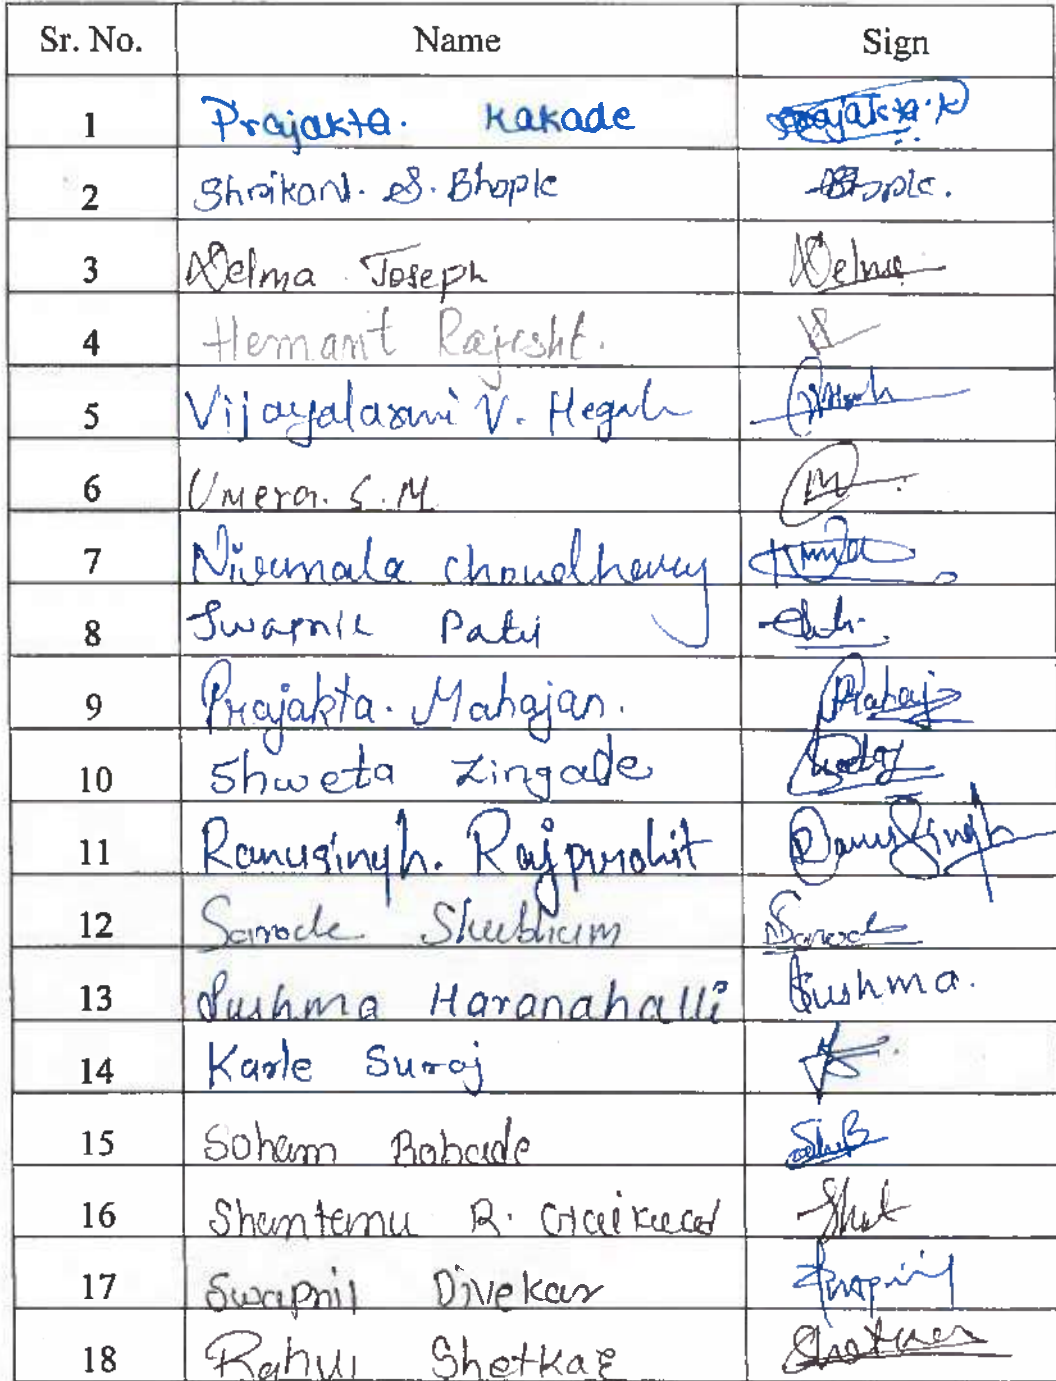 Sr. No. Name Sign
1 Prajakta. Kakade Prajakta.K
2 Shrikant. S. Bhople Bhople.
3 Delma Joseph Delma
4 Hemant
5 Vijayalaxmi V. Hegde
6 Umera. S. M. M
7 Nirmala Choudhary
8 Swapnil Patil
9 Prajakta. Mahajan.
10 Shweta Zingade
11 Ranusingh. Rajpurohit RanuSingh
12 Sarode Shubham Sarode
13 Sushma Haranahalli Sushma.
14 Karle Suraj
15 Soham Babade
16 Shantanu R. Gaikwad
17 Swapnil Divekar Swapnil
18 Rahul Shetkar Shetkar